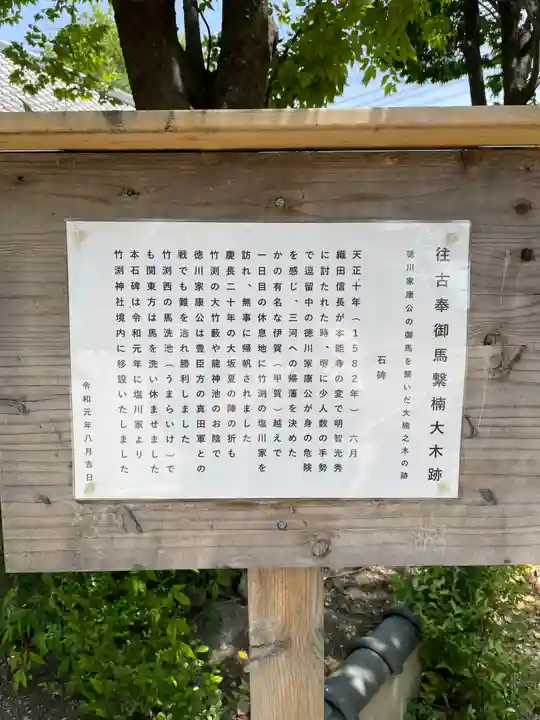 往古奉御馬繋楠大木跡
徳川家康公の御馬を繋いだ大楠之木の跡
石碑
天正十年(1582年) 六月
織田信長が本能寺の変で明智光秀
に討たれた時、堺に少人数の手勢
で逗留中の徳川家康公が身の危険
を感じ、三河への帰藩を決めた
かの有名な伊賀(甲賀)越えで
一日目の休息地に竹渕の塩川家を
訪れ、無事に帰帆されました
慶長二十年の大坂夏の陣の折も
竹渕の大竹藪や龍神池のお陰で
徳川家康公は豊臣方の真田軍との
戦でも難を逃れ勝利しました
竹渕西の馬洗池(うまらいけ)で
も関東方は馬を洗い休ませました
本石碑は令和元年に塩川家より
竹渕神社境内に移設いたしました
令和元年八月吉日